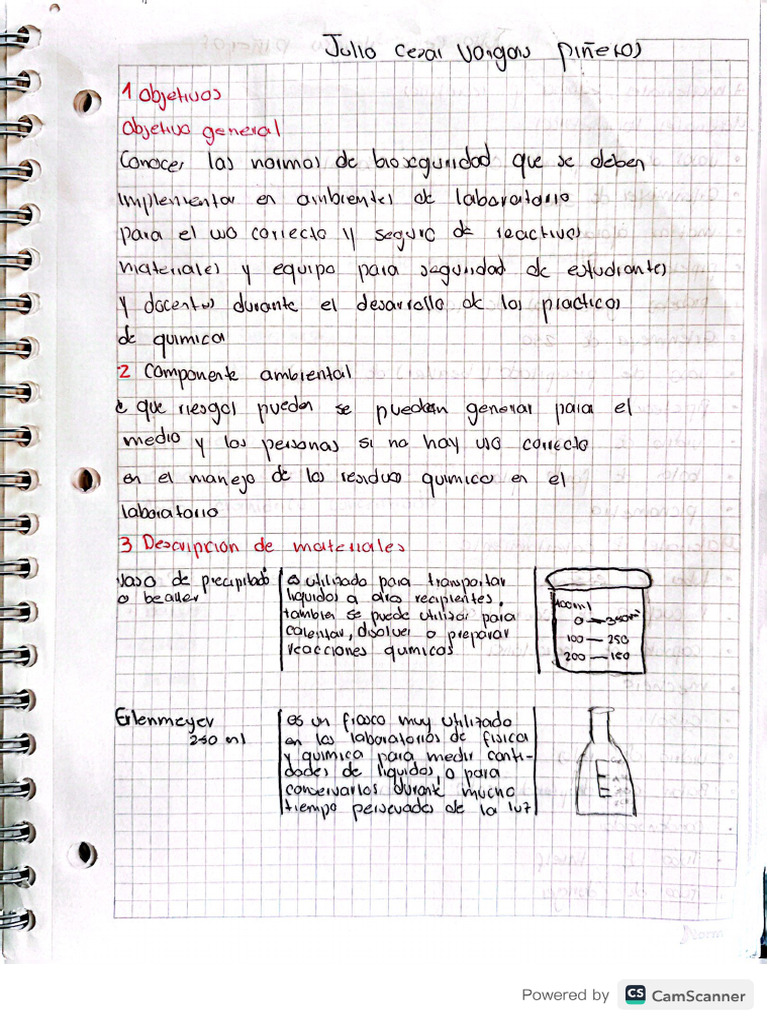 Julio Cezar Vargas Piñeros
1 Objetivos
Objetivo general
Conocer las normas de bioseguridad que se deben
implementar en ambientes de laboratorio
para el uso correcto y seguro de reactivos
materiales y equipo para seguridad de estudiantes
y docentes durante el desarrollo de las practicas
de quimica
2 Componente ambiental
¿ que riesgos pueden se pueden generar para el
medio y las personas si no hay uso correcto
en el manejo de los residuos quimico en el
laboratorio
3 Descripcion de materiales
vaso de precipitado
o beaker
es utilizado para transportar
liquidos a otro recipientes.
tambien se puede utilizar para
calentar, disolver o preparar
reacciones quimicas
400ml
0 — 350
100 — 250
200 — 150
Erlenmeyer
250 ml
es un frasco muy utilizado
en los laboratorios de fisica
y quimica para medir canti-
dades de liquidos, o para
conservarlos durante mucho
tiempo
de la luz
Powered by CS CamScanner